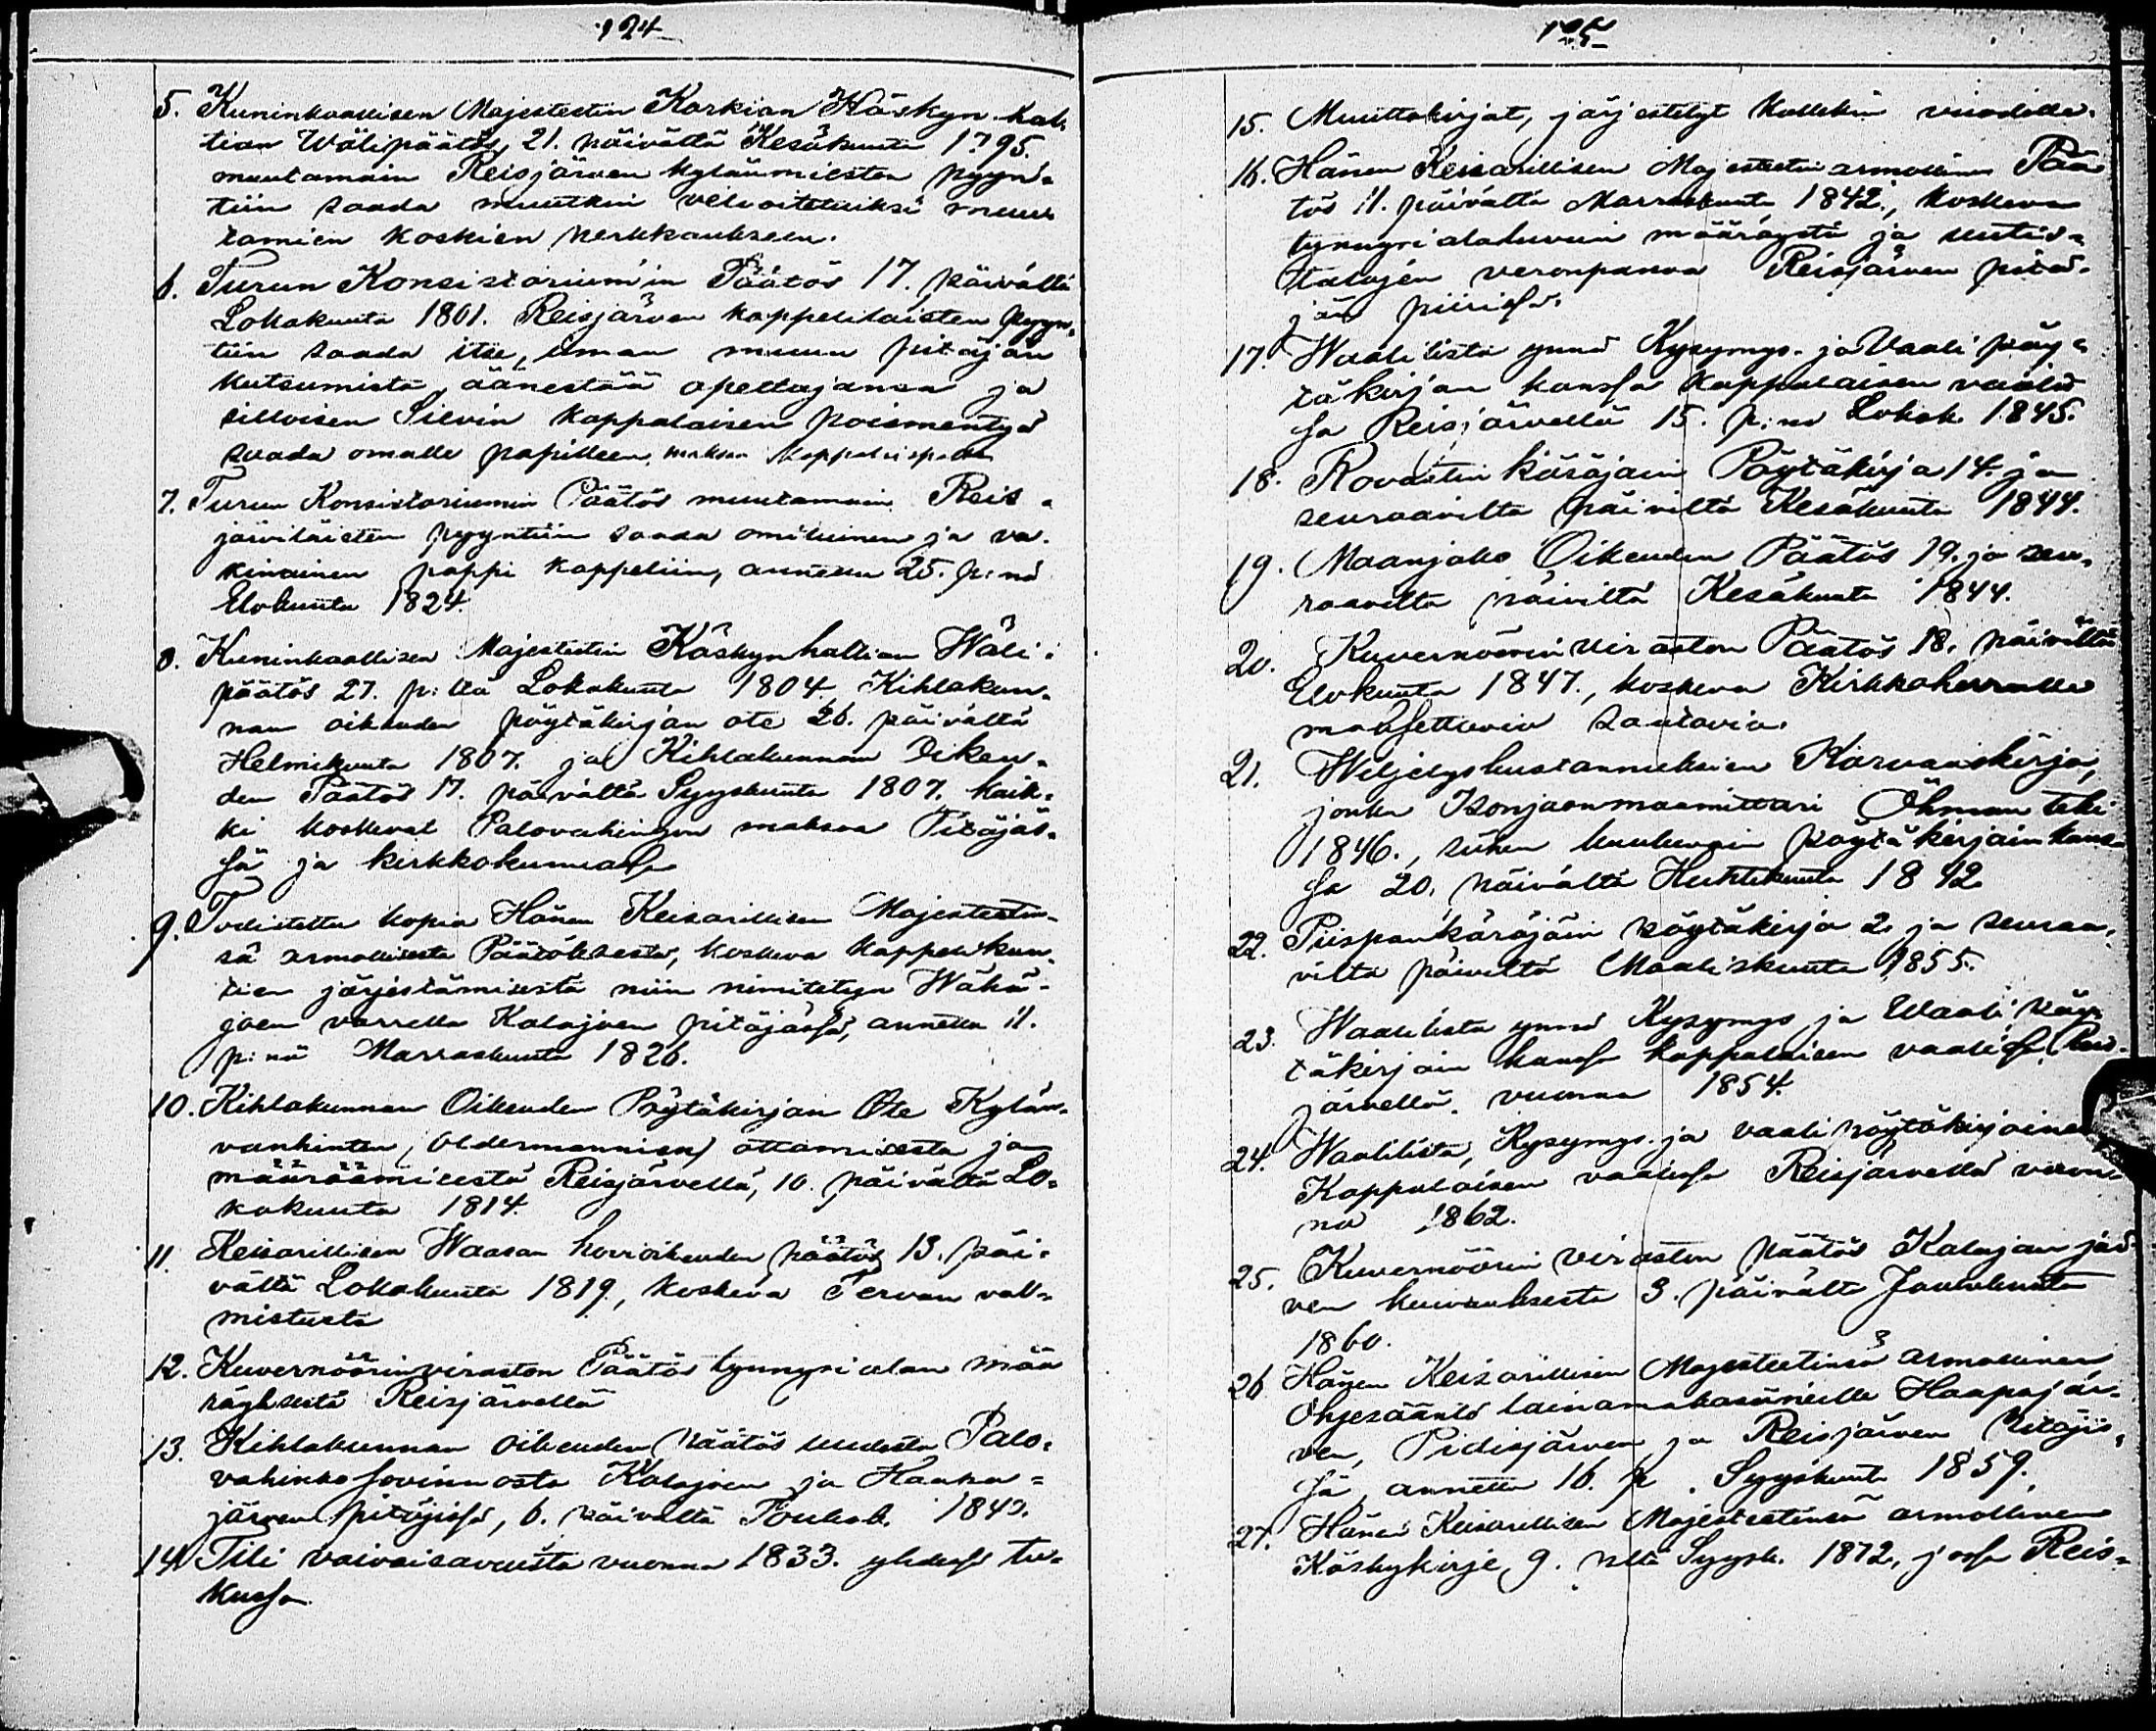 124
5. Kuninkaallisen Majestestin Korkian Käskyn hal-
tian Wälipäätös, 21. päivältä Kesäkuuta 1795.
muutamain Reisjärven kylänmiesten pyyn-
tiin saada muutkin velvoitetuiksi muu-
tamien koskien perkkaukseen.
6. Turun Konsistorium'in Päätös 17. päivältä
Lokakuuta 1801. Reisjärven kappelilaisten pyyn-
tiin saada itse, ilman muun pitäjän
kutsumista, äänestää opettajansa ja
silloisen Silvin kappalaisen poismentyä
saada omalle papilleen maksaa
7. Turun Konsistoriumin Päätös muutamain Reis-
järviläisten pyyntiin saada omituinen ja va-
kinainen pappi kappeliin, annettu 25. p:nä
Elokuuta 1824.
8. Kuninkaallisen Majestetin Käskynhaltian Wäli-
päätös 27. p:ltä Lokakuuta 1804. Kihlakun-
nan oikeuden pöytäkirjan ote 26. päivältä
Helmikuuta 1807. ja Kihlakunnan Oikeu-
den Päätös 17. päivältä Syyskuuta 1807. kaik-
ki koskevat Palovahingon maksoa Pitäjäs-
sä ja kirkkokunnassa
9. Todistettu kopia Hänen Keisarillisen Majesteetin-
sä armollisesta Päätöksestä, koskeva kappelikun-
tien järjestämisestä niin nimitetyn Wähä-
joen varrella Kalajoen pitäjässä, annettu 11.
p:nä Marraskuuta 1826.
10. Kihlakunnan Oikeuden Pöytäkirjan Ote Kylän-
vanhinten, (oldermannien) ottamisesta ja
määräämisestä Reisjärvellä, 10. päivältä Lo-
kakuuta 1814.
11. Keisarillisen Waasan hovioikeuden päätös 13. päi-
vältä Lokakuuta 1819., koskeva Tervan val-
mistusta
12. Kuvernöörinviraston Päätös tynnyrialan mää
räyksestä Reisjärvellä
13. Kihlakunnan oikeuden päätös uudesta Palo-
vahinkosovinnosta Kalajoen ja Haapa-
järven pitäjissä, 6. päivältä Toukok. 1840.
14. Tili vaivaisavuista vuonna 1833. yhdessä tu-
kussa.
125
15. Muuttokirjat, järjestetyt kullekin vuodelle.
16. Hänen Keisarillisen Majesteetin armollinen Pää
tös 11. päivältä Marraskuuta 1842., koskeva
tynnyrialaluvun määräystä ja uutis-
talojen veronpanoa Reisjärven pitä-
jän piirissä.
17. Waalilista ynnä Kysymys- ja Vaali pöy-
täkirjan kanssa kappalaisen vaalis
sa Reisjärvellä 15. p:nä Lokak. 1845.
18. Rovastin käräjäin Pöytäkirja 14. ja
seuraavilta päiviltä Kesäkuuta 1844.
19. Maanjako Oikeuden Päätös 19. ja seu-
raavilta päiviltä Kesäkuuta 1844.
20. Kuvernöörinviraston Päätös 18. päivältä
Elokuuta 1847., koskeva Kirkkoherralle
maksettavia saatavia.
21. Wiljelyskustannuksien Karvaiskirja,
jonka Isonjaonmaamittari Öhman teki
1846., siihen kuuluvain pöytäkirjain kans-
sa 20. päivältä Huhtikuuta 1842
22. Piispankäräjäin pöytäkirja 2. ja seuraa-
vilta päiviltä Maaliskuuta 1855.
23. Waalilista ynnä Kysymys ja Waali pöy-
täkirjain kanssa kappalaisen vaalissa Reis-
järvellä vuonna 1854.
24. Waalilista, Kysymys- ja vaali pöytäkirjoineen
Kappalaisen vaalissa Reisjärvellä vuon-
na 1862.
25. Kuvernöörin viraston päätös Kalajan jär-
ven kuivauksesta 3. päivältä Joulukuuta
1860.
26 Hänen Keisarillisen Majesteetinsä armollinen
Ohjesääntö lainamakasiineille Haapajär-
ven, Pidisjärven ja Reisjärven Pitäjis-
sä, annettu 16. p. Syyskuuta 1859.
27. Hänen Keisarillisen Majesteetinsä armollinen
Käskykirje, 9. p:ltä Syysk. 1872., jossa Reis-